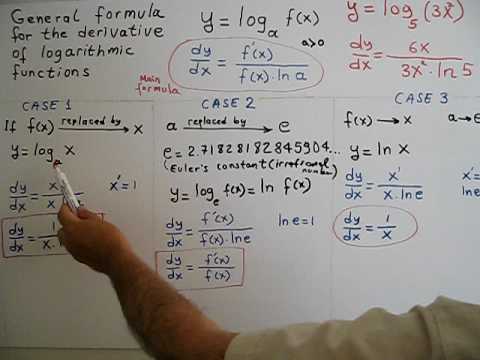 General formula
for the derivative
of logarithmic
functions
y = log_a f(x)
a>0
dy/dx = f'(x)/(f(x)·ln a)
Main
formula
y = log_5 (3x²)
dy/dx = 6x/(3x²·ln 5)
CASE 1
If f(x) replaced by → x
y = log_a x
dy/dx = x'/x
x' = 1
dy/dx = 1/x·
CASE 2
a replaced by → e
e = 2.71828182845904...
(Euler's constant (irrational
number)
y = log_e f(x) = ln f(x)
dy/dx = f'(x)/(f(x)·ln e)
ln e = 1
dy/dx = f'(x)/f(x)
CASE 3
f(x) → x
a → e
y = ln x
dy/dx = x'/(x·ln e)
dy/dx = 1/x